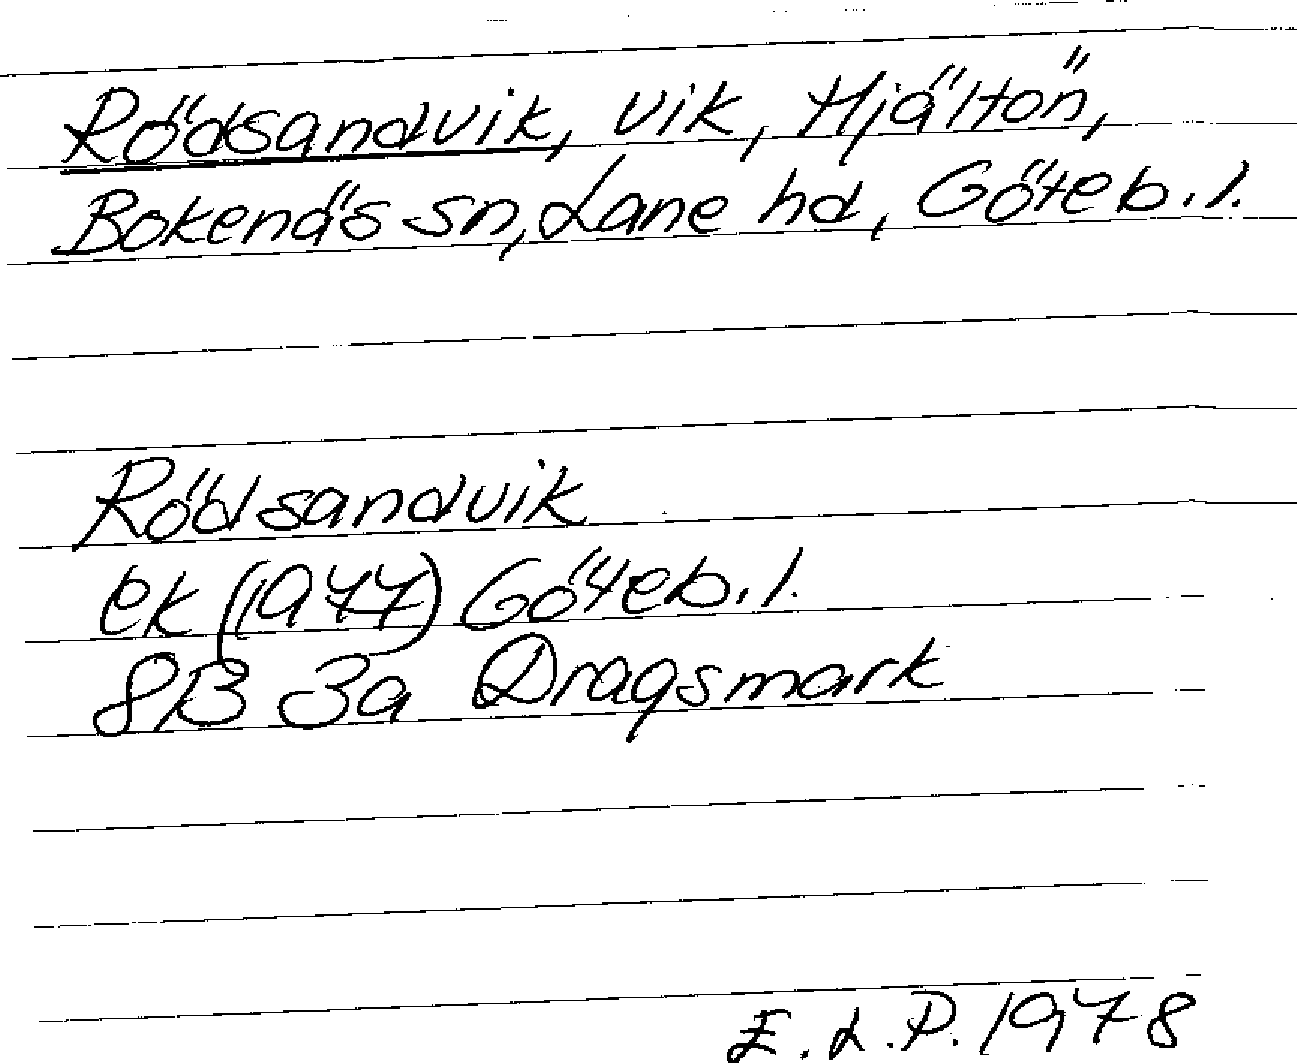 Rödsandvik, vik, Hjältön,
Bokenäs sn, Lane hd, Göteb.l.
Rödsandvik
ek (1977) Göteb.l.
8B 3a Dragsmark
E.L.P. 1978